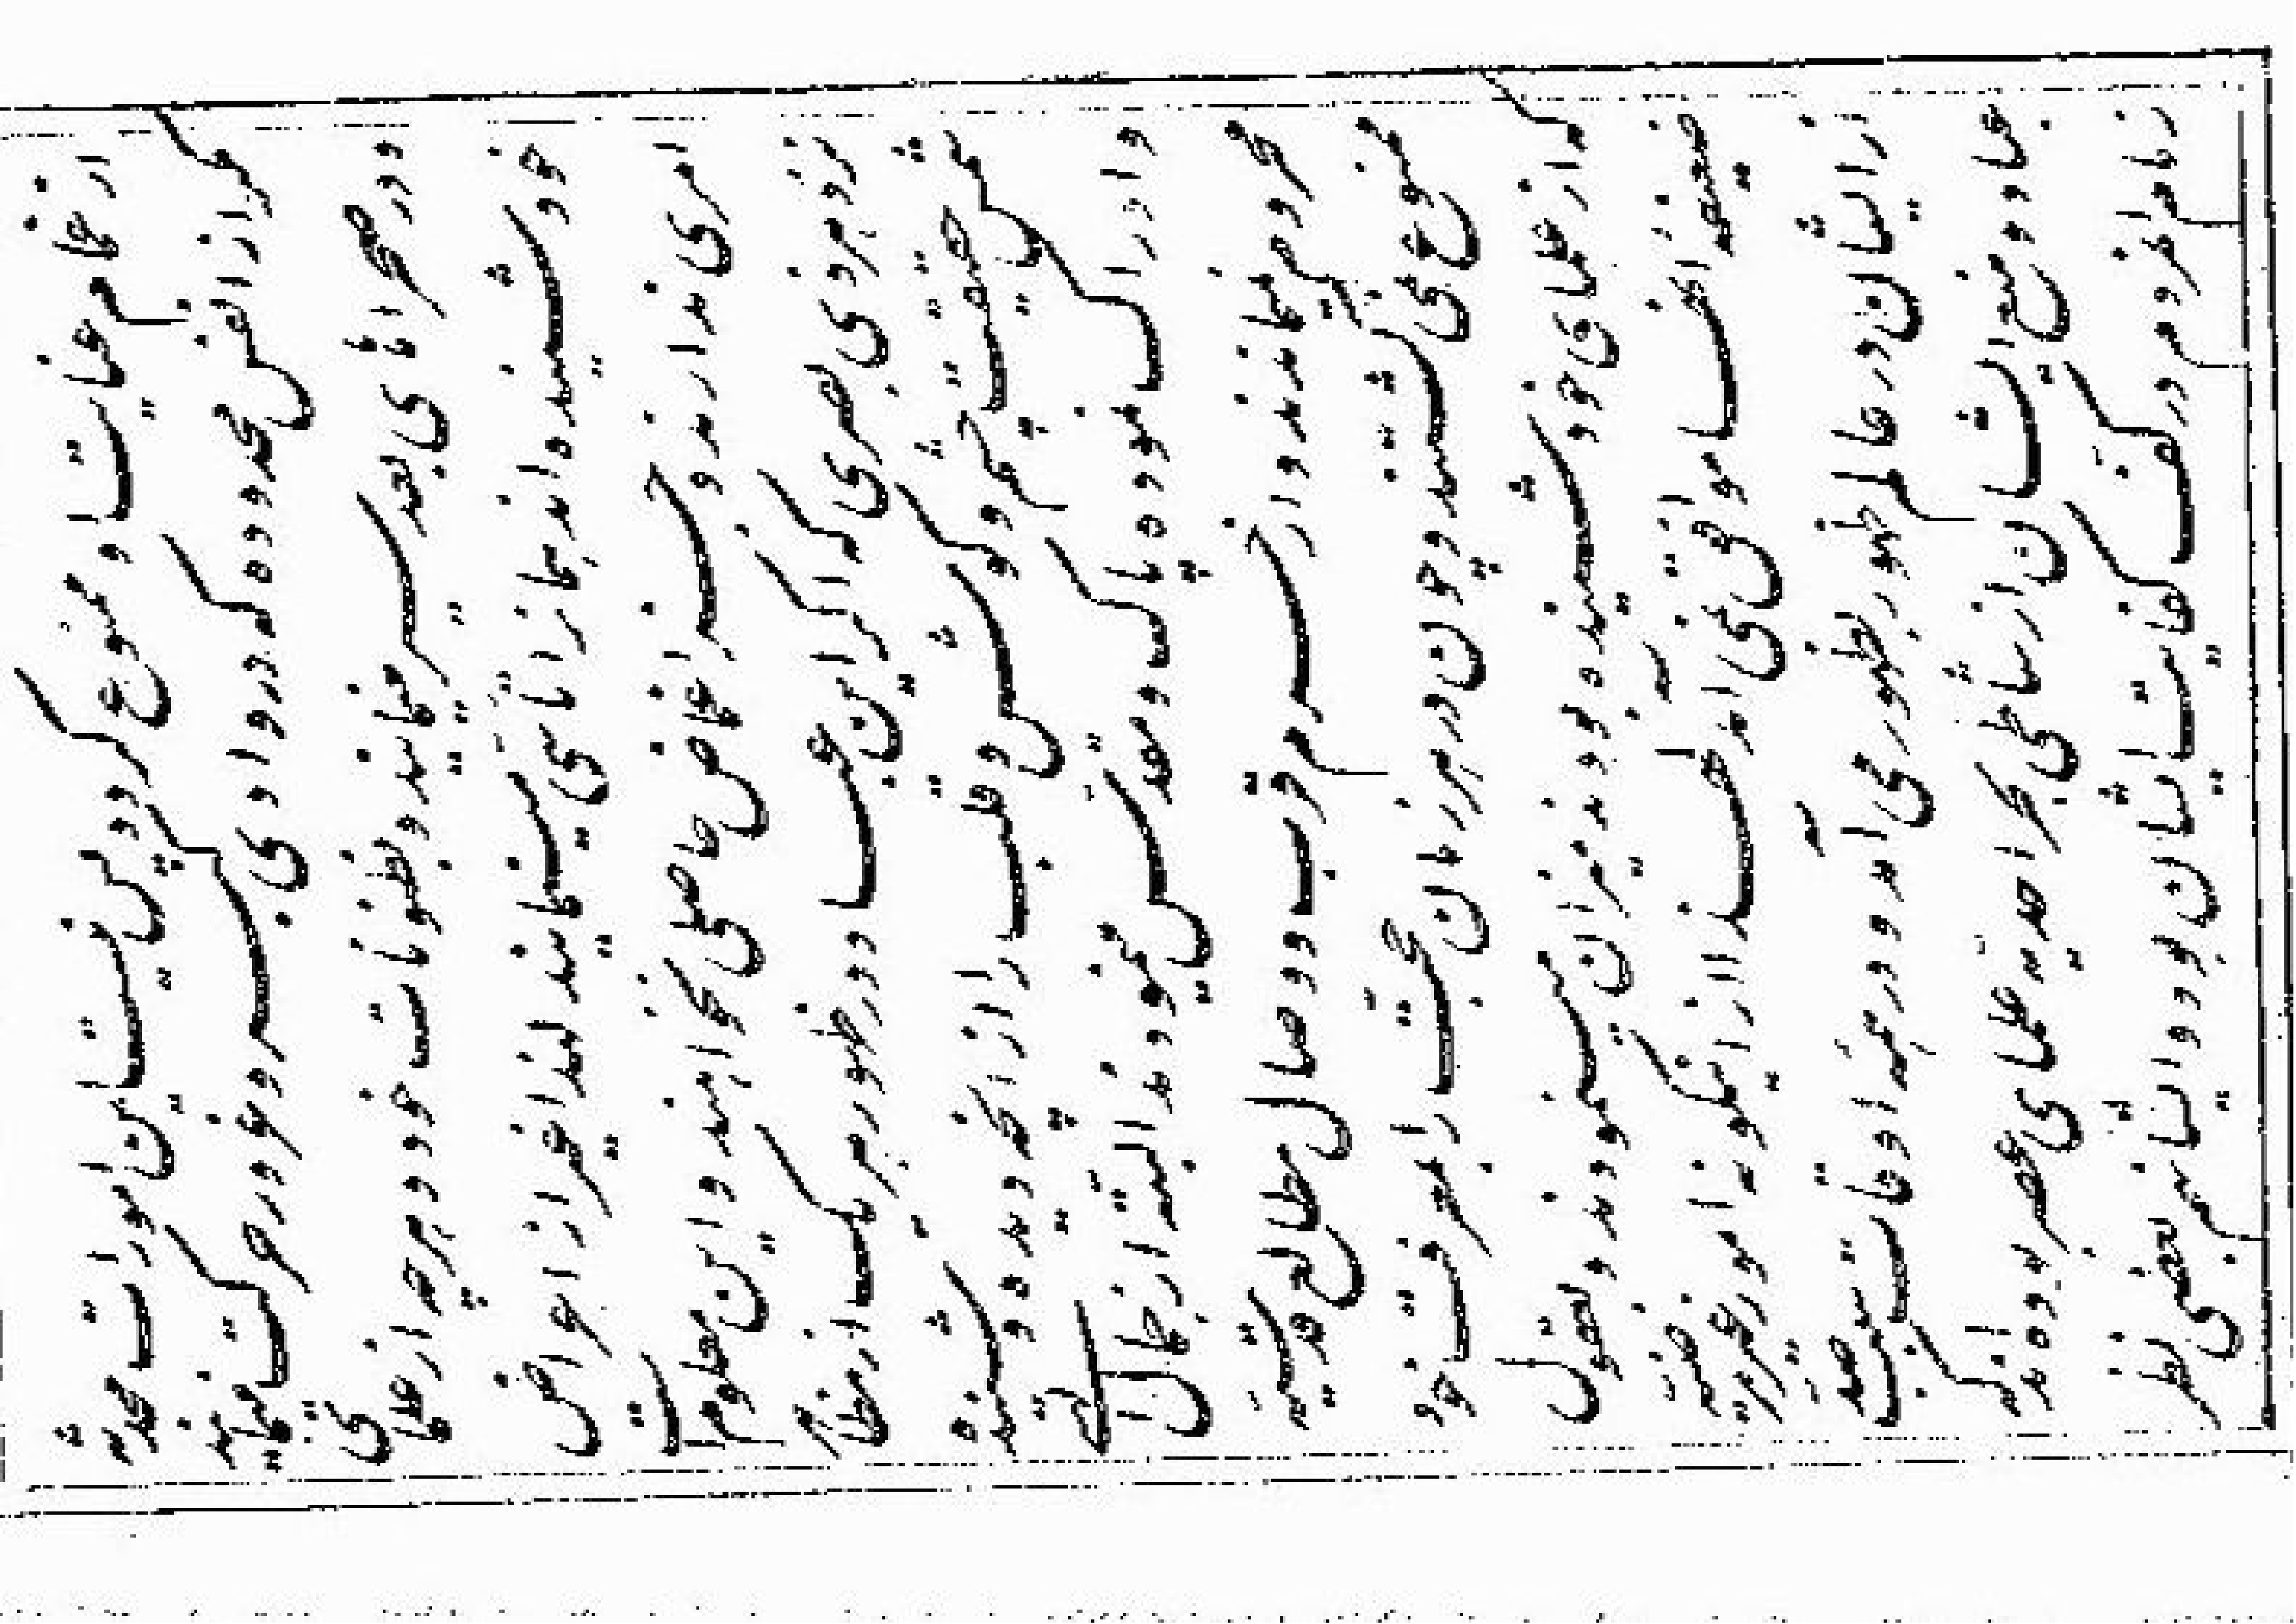 از غمام عنایت او ممنوع گردد پس نیست این امورات محدثه
مگر از انفس محدوده که در وادی کبر و غرور حرکت مینمایند
و در صحراهای بعد سیر مینمایند و بظنونات خود و بهرچه از علمای
خود شنیده‌اند همانرا تاسی مینمایند لهذا غیر از اعراض
امری ندارند و جز اغماض حاصلی نخواهند و این معلوم است
نزد هر ذی بصری که اگر این عباد در ظهور هر یک از مظاهر
شمسیه چشم و گوش و قلب را از آنچه دیده و شنیده
و ادراک نموده پاک و مقدس مینمودند البته از جمال الهی
محروم نمیماندند و از حرم قرب و وصال مطالع قدسیه
ممنوع نمیگشتند و چون در هر زمان حجت را بمعرفت خود
که از علمای خود شنیده بودند میزان مینمودند و بعقول
ضعیفه آنها موافق نمی‌آمد لهذا از اینگونه امور غیر مرضیه
از ایشان در عالم ظهور بظهور می‌آمد و در همه اوقات سبب صد
عباد و منع ایشان از شاطی بحر احدیه علمای عصر بوده‌اند که
زمام آنمردم در کف کفایت ایشان بود و ایشان هم بعضی نظر